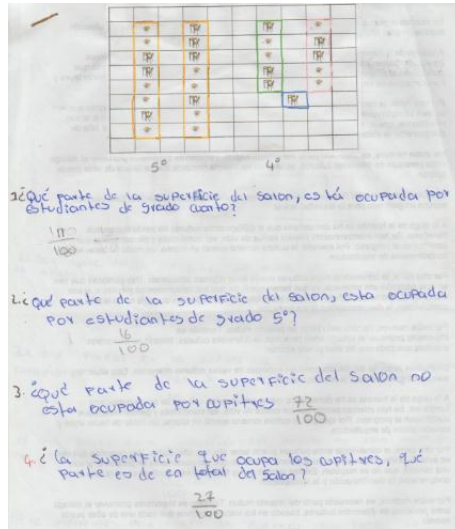 5° 4°
1¿Qué parte de la superficie del salon, está ocupada por
estudiantes de grado cuarto?
11
100
2.¿Qué parte de la superficie del salon, esta ocupada
por estudiantes de grado 5°?
16
100
3. ¿Qué parte de la superficie del salon no
esta ocupada por cupitres 72
100
4. ¿ la superficie que ocupa los cupitres, qué
parte es de en total del salon?
27
100